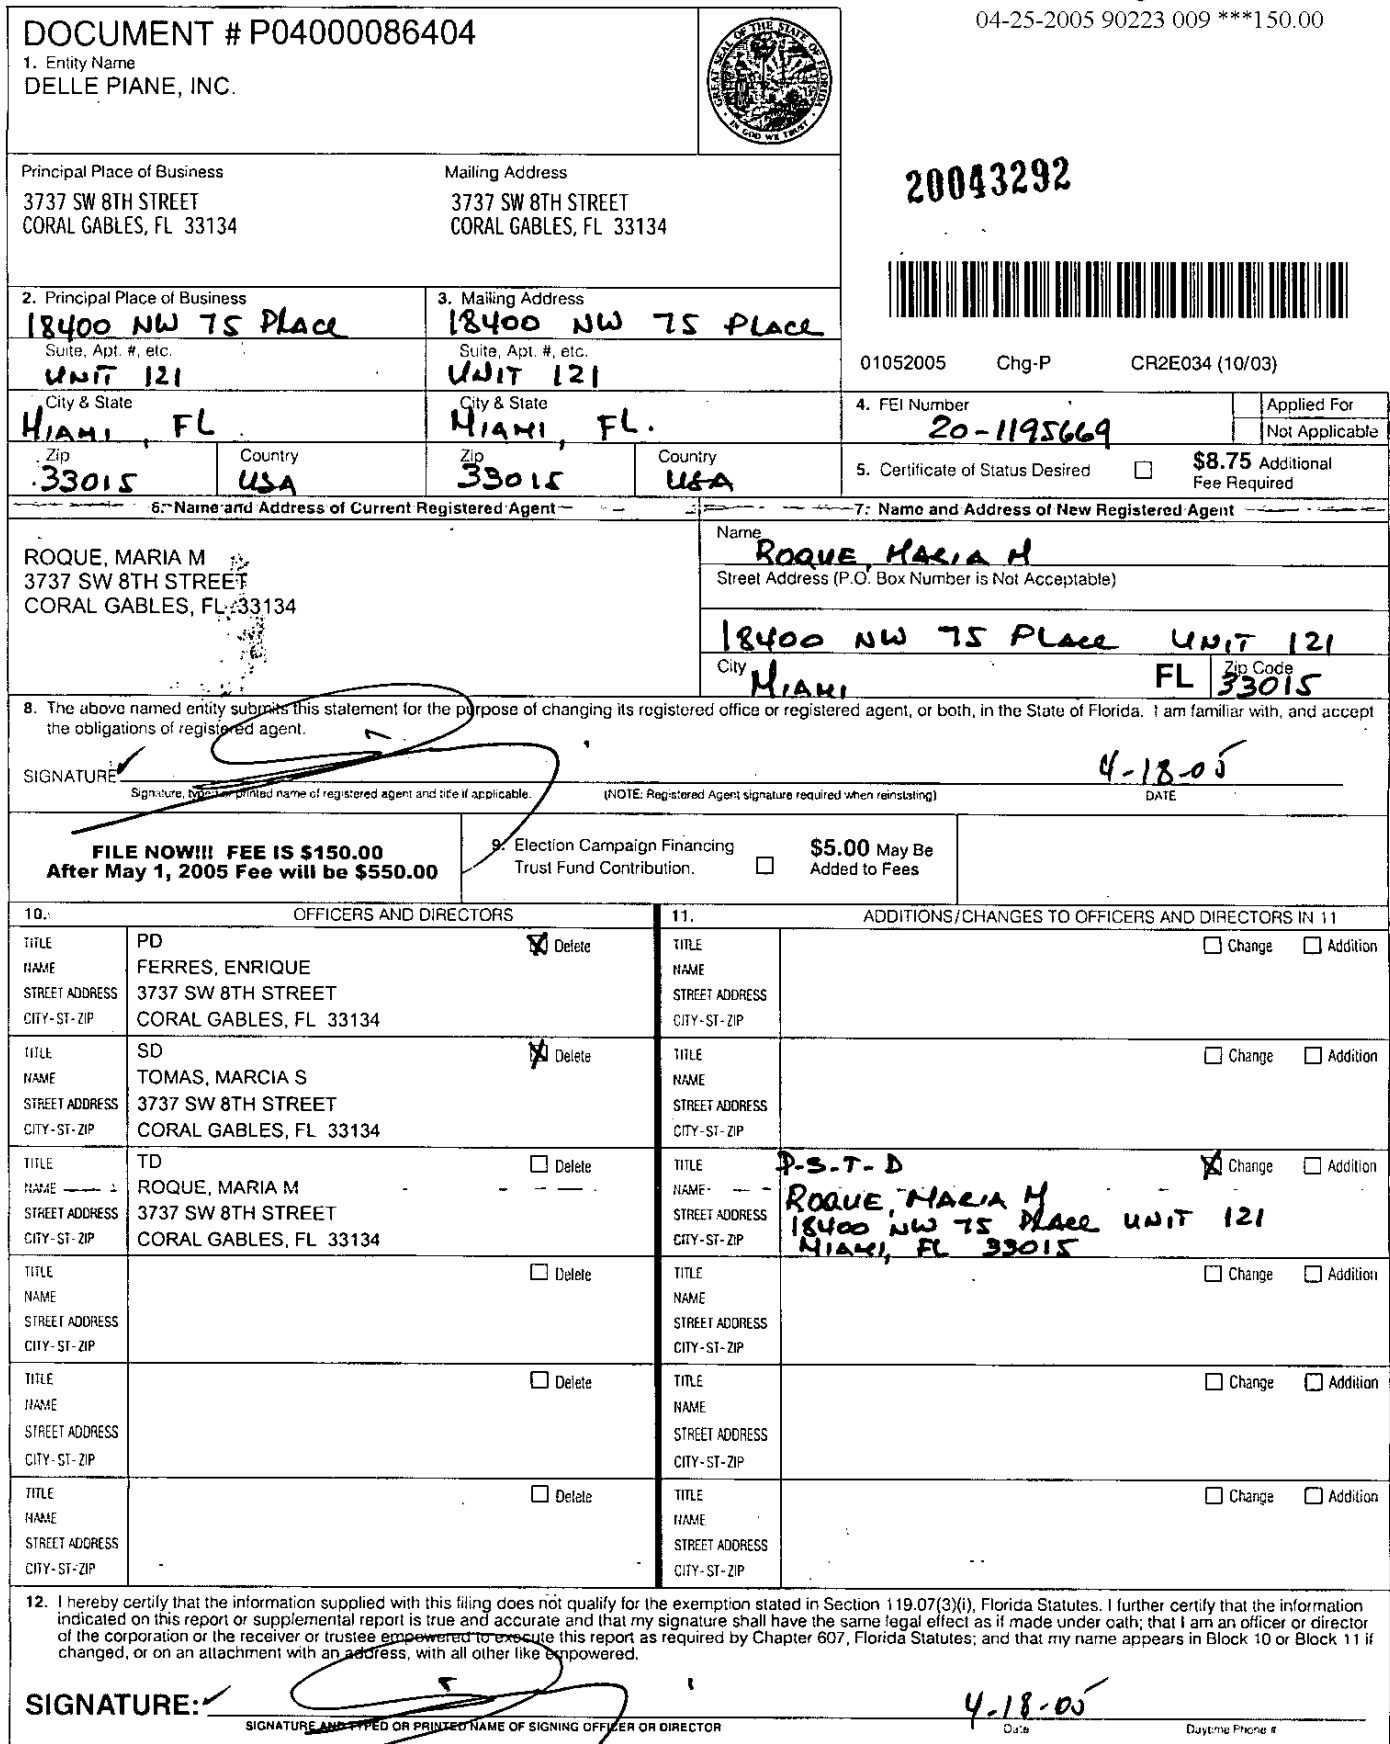 04-25-2005 90223 009 ***150.00
DOCUMENT # P04000086404
1. Entity Name
DELLE PIANE, INC.
GREAT SEAL OF THE STATE OF FLORIDA
IN GOD WE TRUST
Principal Place of Business
3737 SW 8TH STREET
CORAL GABLES, FL 33134
Mailing Address
3737 SW 8TH STREET
CORAL GABLES, FL 33134
20043292
2. Principal Place of Business
18400 NW 75 PLACE
Suite, Apt. #, etc.
UNIT 121
City & State
MIAMI, FL
Zip
33015
Country
USA
3. Mailing Address
18400 NW 75 PLACE
Suite, Apt. #, etc.
UNIT 121
City & State
MIAMI, FL.
Zip
33015
Country
USA
01052005 Chg-P CR2E034 (10/03)
4. FEI Number
20-1195669
Applied For
Not Applicable
5. Certificate of Status Desired
$8.75 Additional
Fee Required
6. Name and Address of Current Registered Agent
ROQUE, MARIA M
3737 SW 8TH STREET
CORAL GABLES, FL 33134
7. Name and Address of New Registered Agent
Name
ROQUE, MARIA M
Street Address (P.O. Box Number is Not Acceptable)
18400 NW 75 PLACE UNIT 121
City
MIAMI
FL
Zip Code
33015
8. The above named entity submits this statement for the purpose of changing its registered office or registered agent, or both, in the State of Florida. I am familiar with, and accept
the obligations of registered agent.
SIGNATURE
4-18-05
Signature, typed or printed name of registered agent and title if applicable.
(NOTE: Registered Agent signature required when reinstating)
DATE
FILE NOW!!! FEE IS $150.00
After May 1, 2005 Fee will be $550.00
9. Election Campaign Financing
Trust Fund Contribution.
$5.00 May Be
Added to Fees
10. OFFICERS AND DIRECTORS
TITLE PD Delete
NAME FERRES, ENRIQUE
STREET ADDRESS 3737 SW 8TH STREET
CITY-ST-ZIP CORAL GABLES, FL 33134
TITLE SD Delete
NAME TOMAS, MARCIA S
STREET ADDRESS 3737 SW 8TH STREET
CITY-ST-ZIP CORAL GABLES, FL 33134
TITLE TD Delete
NAME ROQUE, MARIA M
STREET ADDRESS 3737 SW 8TH STREET
CITY-ST-ZIP CORAL GABLES, FL 33134
TITLE Delete
NAME
STREET ADDRESS
CITY-ST-ZIP
TITLE Delete
NAME
STREET ADDRESS
CITY-ST-ZIP
TITLE Delete
NAME
STREET ADDRESS
CITY-ST-ZIP
11. ADDITIONS/CHANGES TO OFFICERS AND DIRECTORS IN 11
TITLE Change Addition
NAME
STREET ADDRESS
CITY-ST-ZIP
TITLE Change Addition
NAME
STREET ADDRESS
CITY-ST-ZIP
TITLE P-S-T-D Change Addition
NAME ROQUE, MARIA M
STREET ADDRESS 18400 NW 75 PLACE UNIT 121
CITY-ST-ZIP MIAMI, FL 33015
TITLE Change Addition
NAME
STREET ADDRESS
CITY-ST-ZIP
TITLE Change Addition
NAME
STREET ADDRESS
CITY-ST-ZIP
TITLE Change Addition
NAME
STREET ADDRESS
CITY-ST-ZIP
12. I hereby certify that the information supplied with this filing does not qualify for the exemption stated in Section 119.07(3)(i), Florida Statutes. I further certify that the information
indicated on this report or supplemental report is true and accurate and that my signature shall have the same legal effect as if made under oath; that I am an officer or director
of the corporation or the receiver or trustee empowered to execute this report as required by Chapter 607, Florida Statutes; and that my name appears in Block 10 or Block 11 if
changed, or on an attachment with an address, with all other like empowered.
SIGNATURE:
4-18-05
SIGNATURE AND TYPED OR PRINTED NAME OF SIGNING OFFICER OR DIRECTOR
Date
Daytime Phone #